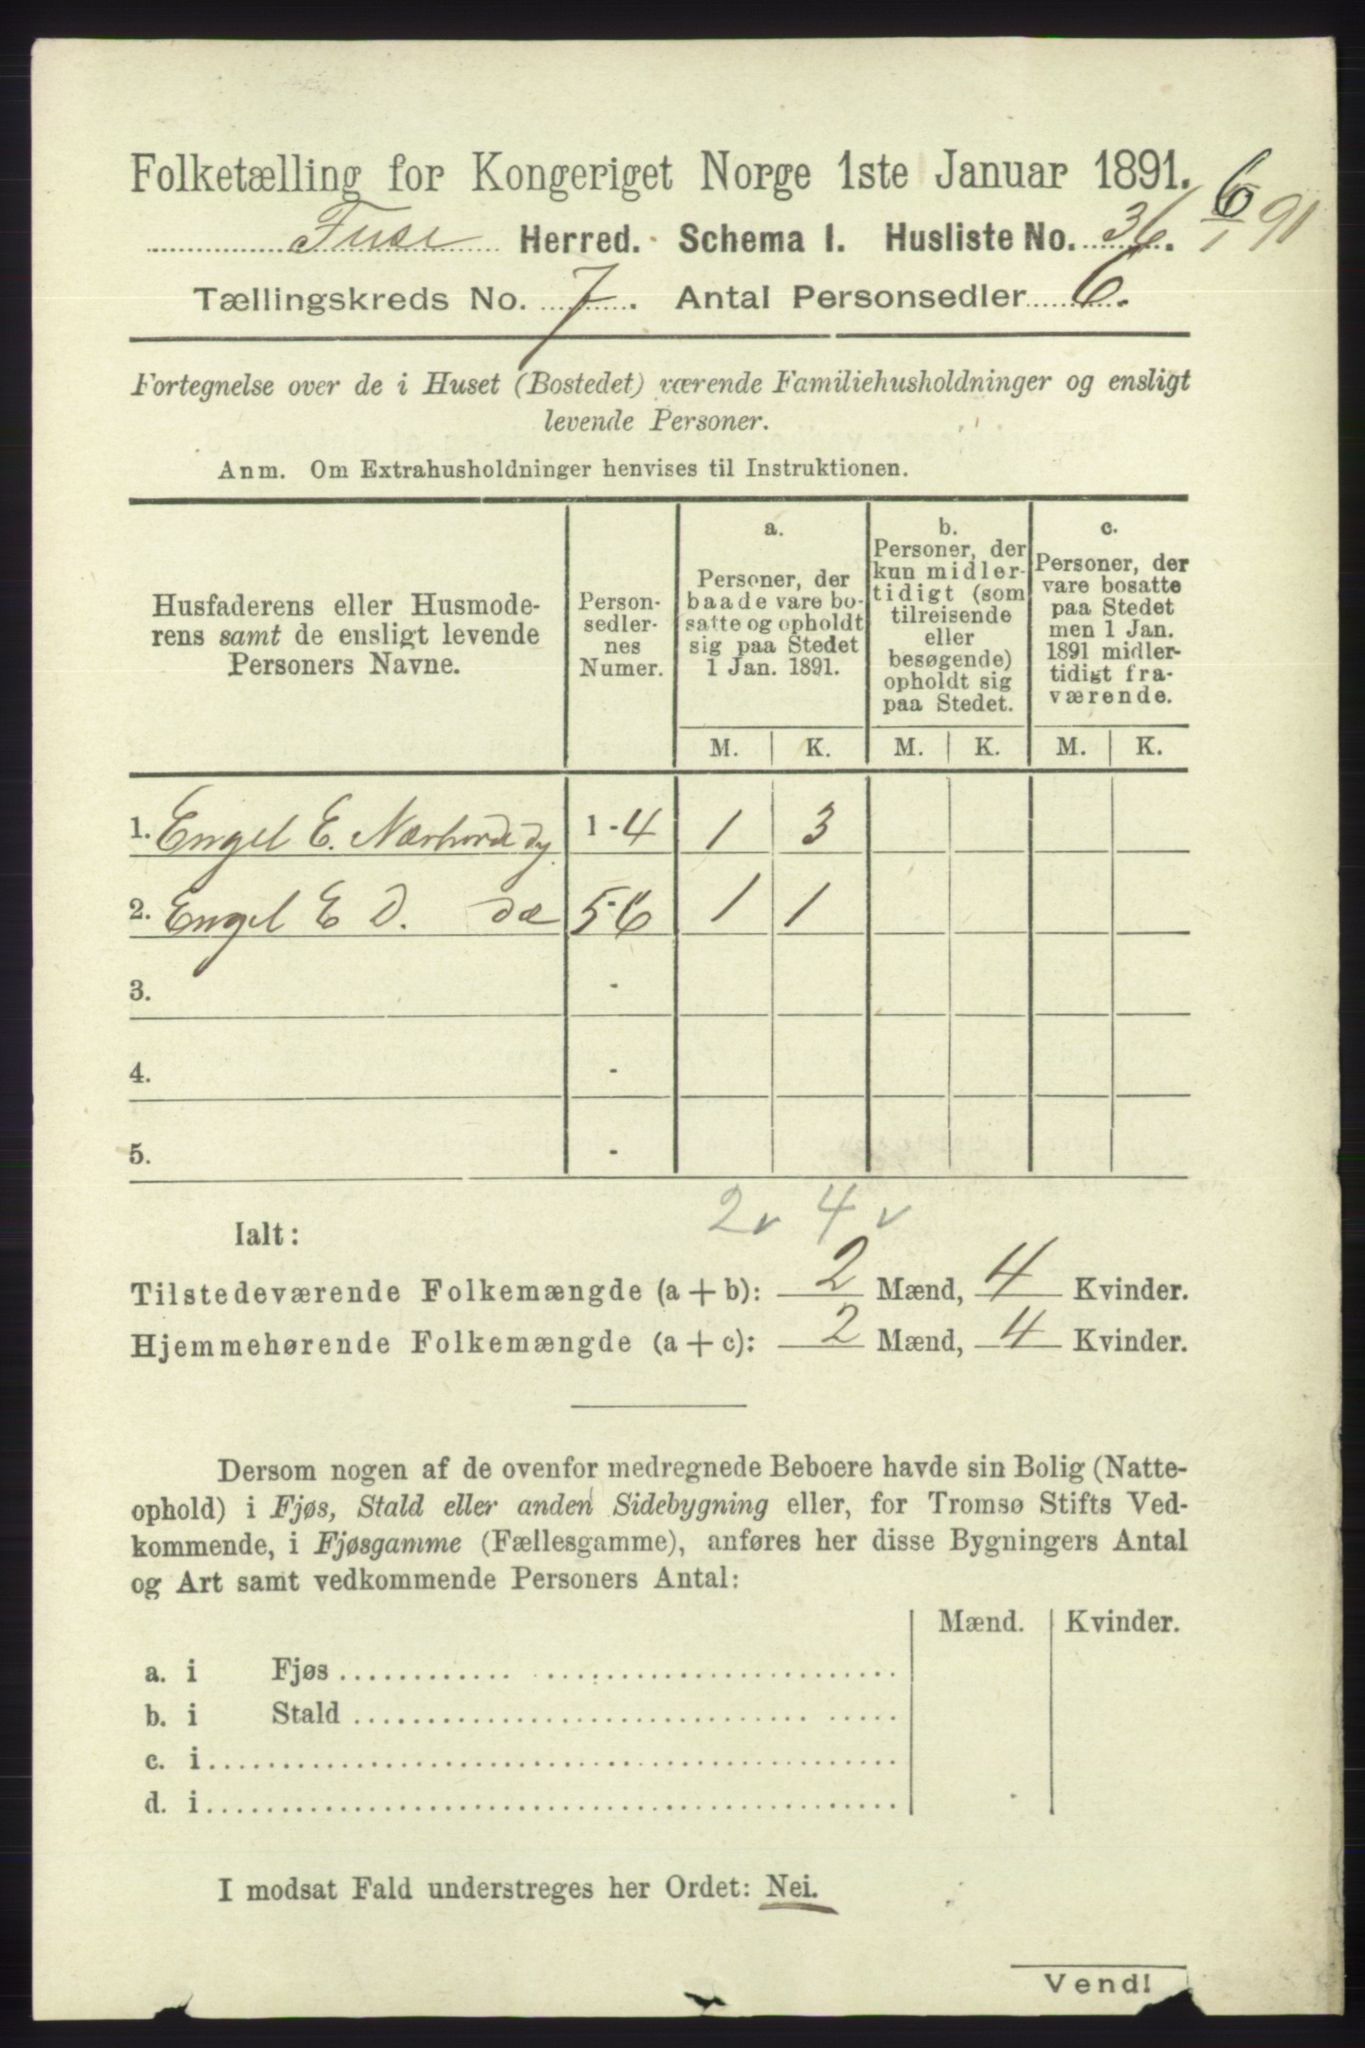 Folketælling for Kongeriget Norge 1ste Januar 1891.
Fuse Herred. Schema I. Husliste No. 36. 6/1 91
Tællingskreds No. 7. Antal Personsedler 6.
Fortegnelse over de i Huset (Bostedet) værende Familiehusholdninger og ensligt
levende Personer.
Anm. Om Extrahusholdninger henvises til Instruktionen.
Husfaderens eller Husmode-
rens samt de ensligt levende
Personers Navne.
Person-
sedler-
nes
Numer.
a.
Personer, der
baade vare bo-
satte og opholdt
sig paa Stedet
1 Jan. 1891.
b.
Personer, der
kun midler-
tidigt (som
tilreisende
eller
besøgende)
opholdt sig
paa Stedet.
c.
Personer, der
vare bosatte
paa Stedet
men 1 Jan.
1891 midler-
tidigt fra-
værende.
M. K. M. K. M. K.
1. Engel E. 1-4 1 3
2. Engel E D. 5-6 1 1
3. -
4. -
5. -
2v 4v
Ialt:
Tilstedeværende Folkemængde (a+b): 2 Mænd, 4 Kvinder.
Hjemmehørende Folkemængde (a+c): 2 Mænd, 4 Kvinder.
Dersom nogen af de ovenfor medregnede Beboere havde sin Bolig (Natte-
ophold) i Fjøs, Stald eller anden Sidebygning eller, for Tromsø Stifts Ved-
kommende, i Fjøsgamme (Fællesgamme), anføres her disse Bygningers Antal
og Art samt vedkommende Personers Antal:
Mænd. Kvinder.
a. i Fjøs
b. i Stald
c. i
d. i
I modsat Fald understreges her Ordet: Nei.
Vend!